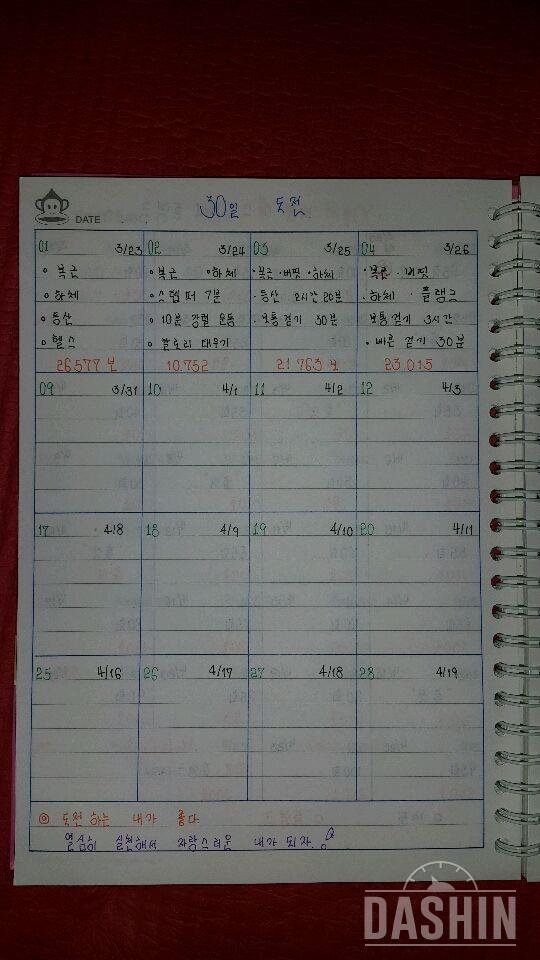 DATE
30일 도전
01 3/23 02 3/24 03 3/25 04 3/26
◦ 복근 ◦ 복근 ◦하체 ·복근 ·버핏 ·하체 ·복근 · 버핏
◦ 하체 ◦ 스텝퍼 7분 ·등산 2시간 20분 ·하체 · 플랭크
◦ 등산 ◦ 10분 강렬 운동 ·보통 걷기 30분 보통걷기 3시간
◦ 헬스 ◦ 칼로리 태우기 ·빠른 걷기 30분
26577 보 10.752 21763 보 23.015
09 3/31 10 4/1 11 4/2 12 4/3
17 4/8 18 4/9 19 4/10 20 4/11
25 4/16 26 4/17 27 4/18 28 4/19
◎ 도전 하는 내가 좋다
열심히 실천해서 자랑스러운 내가 되자.
DASHIN